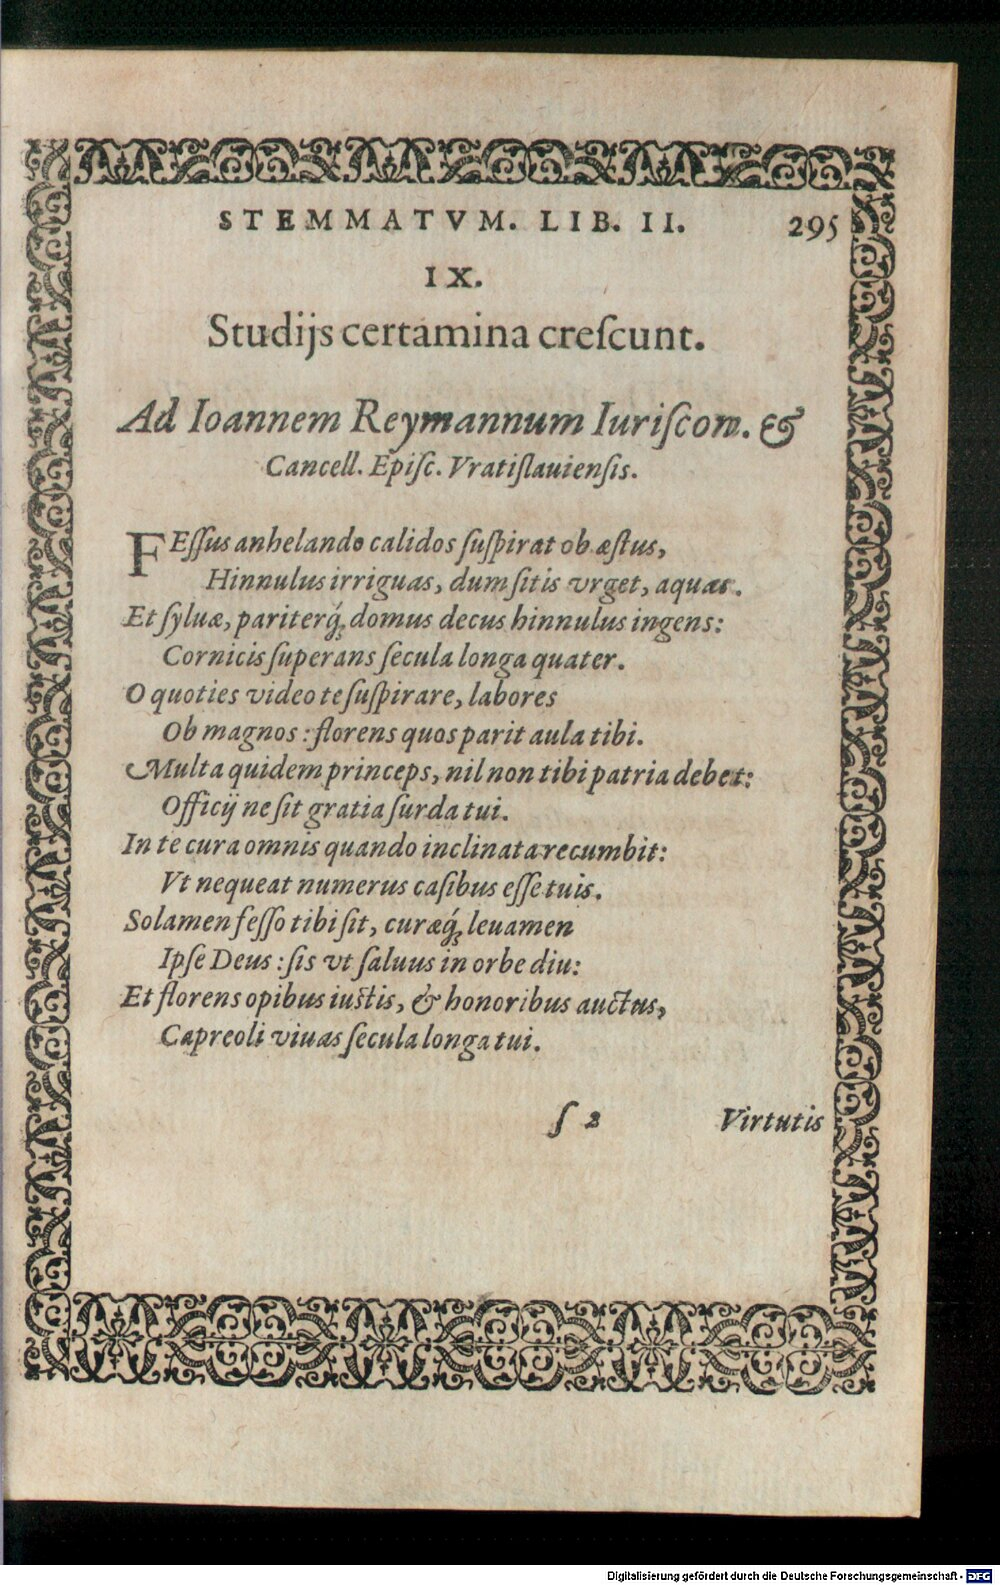 STEMMATVM. LIB. II. 295
IX.
Studijs certamina creſcunt.
Ad Ioannem Reymannum Iuriſcon. &
Cancell. Epiſc. Vratiſlauienſis.
FEſſus anhelando calidos ſuſpirat ob æſtus,
Hinnulus irriguas, dum ſitis vrget, aquas.
Et ſyluæ, pariterq́; domus decus hinnulus ingens:
Cornicis ſuperans ſecula longa quater.
O quoties video te ſuſpirare, labores
Ob magnos: florens quos parit aula tibi.
Multa quidem princeps, nil non tibi patria debet:
Officij ne ſit gratia ſurda tui.
In te cura omnis quando inclinata recumbit:
Vt nequeat numerus caſibus eſſe tuis.
Solamen feſſo tibi ſit, curæq́; leuamen
Ipſe Deus: ſis vt ſaluus in orbe diu:
Et florens opibus iuſtis, & honoribus auctus,
Capreoli viuas ſecula longa tui.
ſ 2 Virtutis
Digitalisierung gefördert durch die Deutsche Forschungsgemeinschaft - DFG